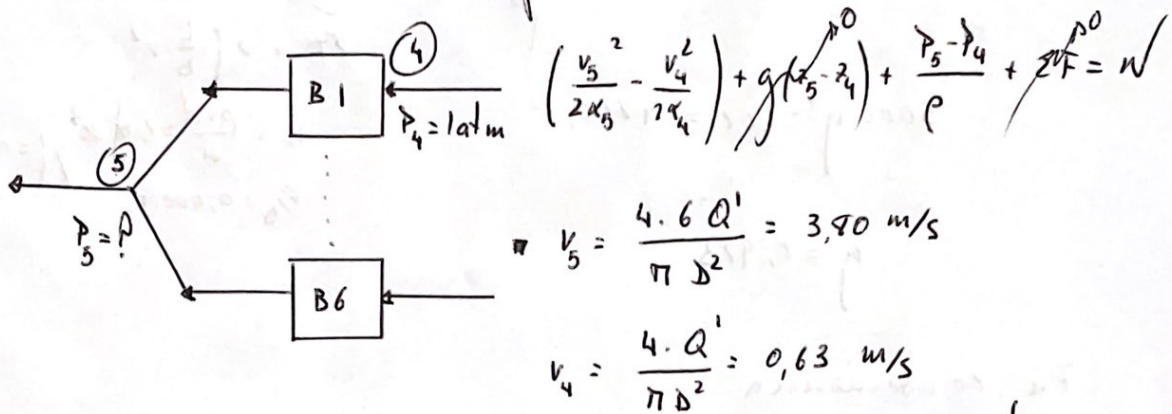 ④
B1
P₄ = 1 atm
⑤
P₅ = ?
B6
(v₅²/2α₅ - v₄²/2α₄) + g(z₅ - z₄) + (P₅ - P₄)/ρ + ΣF = W
0
0
v₅ = 4 · 6 Q'/π D² = 3,80 m/s
v₄ = 4 · Q'/π D² = 0,63 m/s